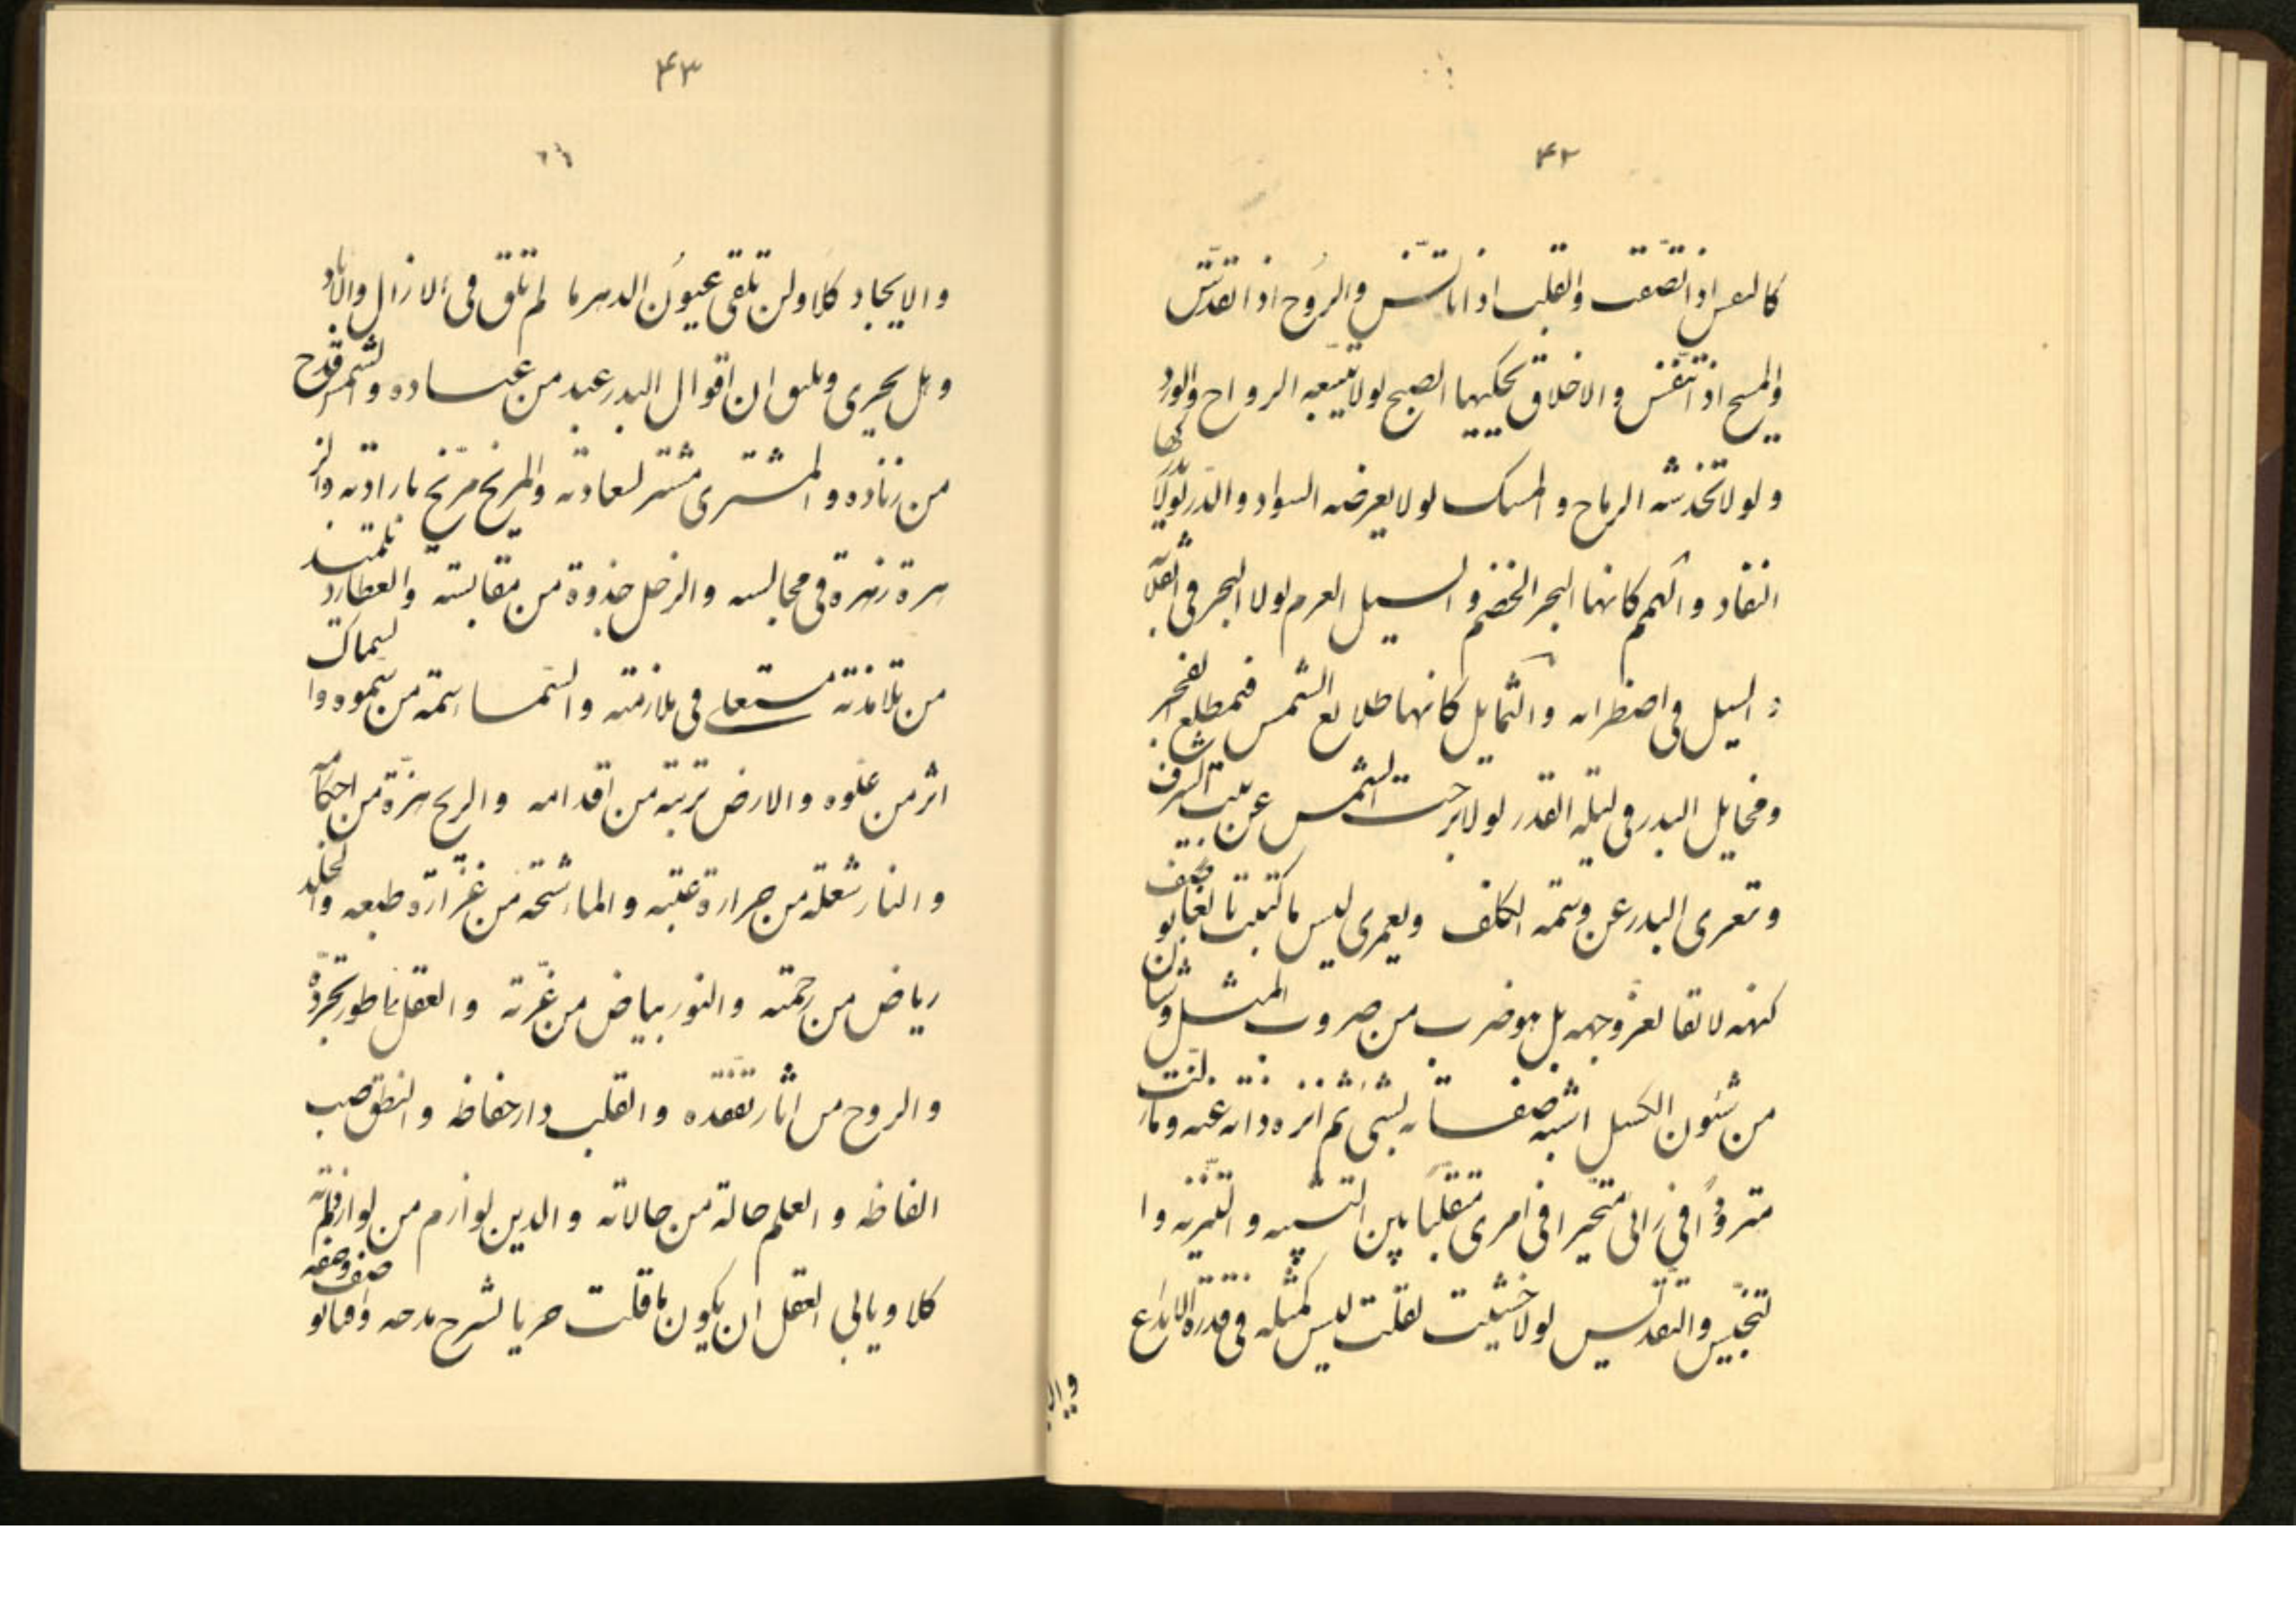 ۴۲
كالنفس اذا تصفت والقلب اذا تانس والروح اذا تقدس
والمسيح اذا تنفس والاخلاق تحكيها الصبح لولا تتبعه الرواح والورد
ولولا تخدشه الرياح والمسك لولا يعرضه السواد والدر لولا
النفاد والهمم كانها البحر الخضم والسيل العرم لولا البحر في
السيل في اضطرابه والشمايل كانها طلايع الشمس في مطلع الفجر
ومخايل البدر في ليلة القدر لولا برحت الشمس عن بيت الشرف
وتعرى البدر عن وسمة الكلف ولعمرى ليس ما كتبت
كنهه لا تقا لعز وجهه بل هو ضرب من ضروب المثل وشان
من شئون الكسل اشبه صفاته بشى ثم انزه ذاته عنه
مترددا في رائى متحيرا في امرى متقلبا بين التشبيه والتنزيه وا
لتجنيس والتقديس لولا خشيت لقلت ليس كمثله في قدرة الابداع
۴۳
والايجاد كلا ولن تلقى عيون الدهر ما لم تلق في الازال والاباد
وهل يحرى ويليق ان اقوال البدر عبد من عباده والشمس قدح
من زناده والمشترى مشتر لسعادته والمريخ مريخ بارادته والز
هرة زهرة في مجالسه والزحل جذوة من مقابسته والعطارد تلميذ
من تلامذته مستعلى في ملازمته والسما سمة من سموه والسماك
اثر من علوه والارض تربة من اقدامه والريح هزة من احكامه
والنار شعلة من حرارة عتبه والماء رشحة من غزارة طبعه والخلد
رياض من رحمته والنور بياض من غرته والعقل ناطور تجرده
والروح من اثار تفقده والقلب دار حفاظه والنطق صب
الفاظه والعلم حالة من حالاته والدين لوازم من لوازم ذاته
كلا ويابى العقل ان يكون ما قلت حريا لشرح مدحه